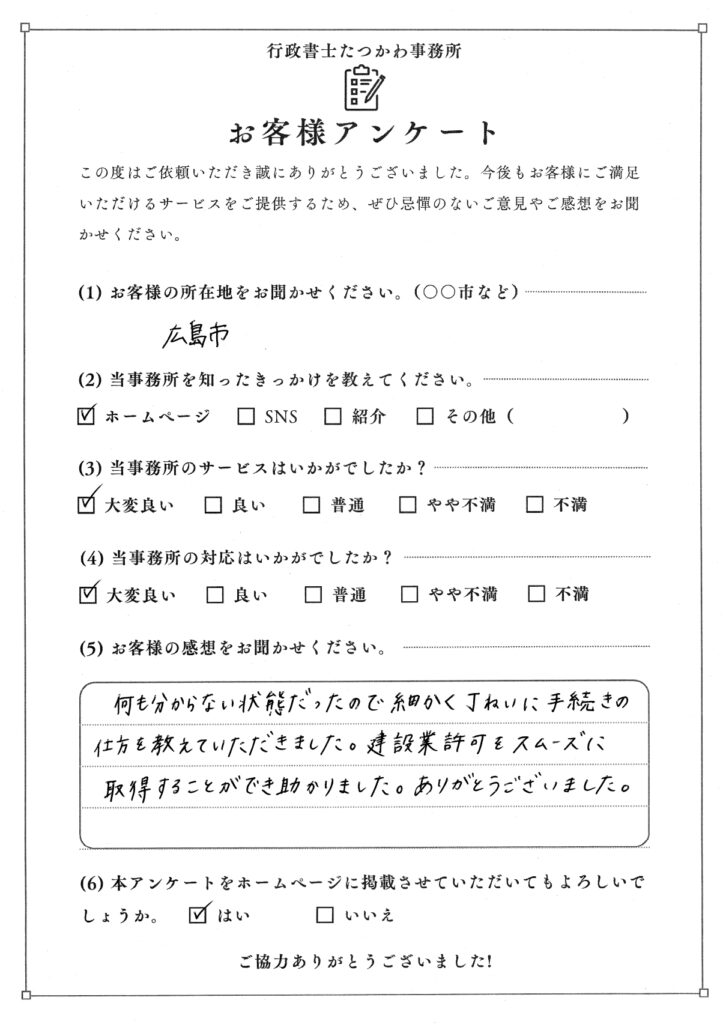 行政書士たつかわ事務所
お客様アンケート
この度はご依頼いただき誠にありがとうございました。今後もお客様にご満足
いただけるサービスをご提供するため、ぜひ忌憚のないご意見やご感想をお聞
かせください。
(1) お客様の所在地をお聞かせください。(〇〇市など)
広島市
(2) 当事務所を知ったきっかけを教えてください。
☑ ホームページ □ SNS □ 紹介 □ その他 ( )
(3) 当事務所のサービスはいかがでしたか?
☑ 大変良い □ 良い □ 普通 □ やや不満 □ 不満
(4) 当事務所の対応はいかがでしたか?
☑ 大変良い □ 良い □ 普通 □ やや不満 □ 不満
(5) お客様の感想をお聞かせください。
何も分からない状態だったので細かく丁ねいに手続きの
仕方を教えていただきました。建設業許可をスムーズに
取得することができ助かりました。ありがとうございました。
(6) 本アンケートをホームページに掲載させていただいてもよろしいで
しょうか。 ☑ はい □ いいえ
ご協力ありがとうございました!